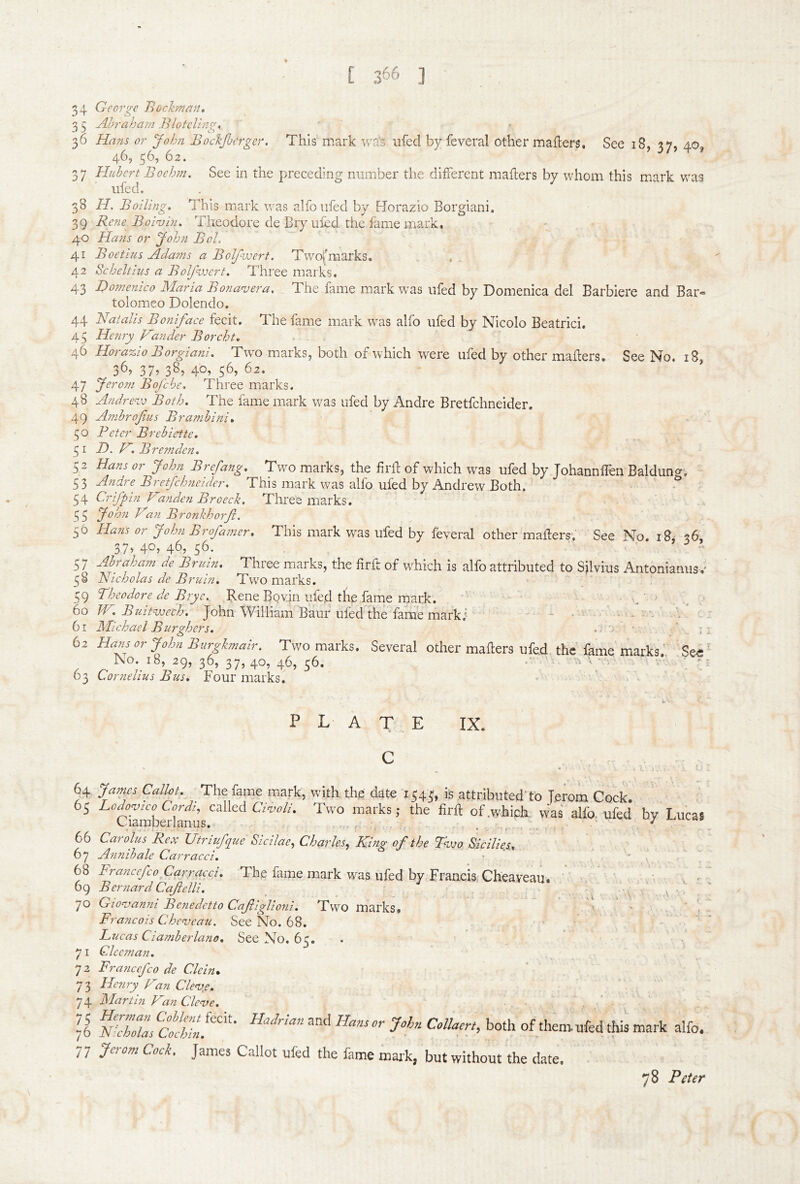 [ 366 ]
34 George Bockman.
35 Abraham Bloteling.
36 Hans or John Bockſberger. This mark was uſed by ſeveral other maſters. See 18, 37, 40,
46, 56, 62.
37 Hubert Boehm. See in the preceding number the different maſters by whom this mark was
uſed.
38 H. Boiling. This mark was alſo uſed by Horazio Borgiani.
39 Rene Boivin. Theodore de Bry uſed the ſame mark.
40 Hans or John Bol.
41 Boetius Adams a Bolſwert. Two marks.
42 Scheltius a Bolſwert. Three marks.
43 Domenico Maria Bonavera. The ſame mark was uſed by Domenica del Barbiere and Bar-
tolomeo Dolendo.
44 Natalis Boniface fecit. The ſame mark was alſo uſed by Nicolo Beatrici.
45 Henry Vander Borcht.
46 Horazio Borgiani. Two marks, both of which were uſed by other maſters. See No. 18,
36, 37, 38, 40, 56, 62.
47 Jerom Boſche. Three marks.
48 Andrew Both. The ſame mark was uſed by Andre Bretſchneider.
49 Ambroſius Brambini.
50 Peter Brebiette.
51 D. V. Bremden.
52 Hans or John Breſang. Two marks, the firſt of which was uſed by Johannſſen Baldung.
53 Andre Bretſchneider. This mark was alſo uſed by Andrew Both.
54 Criſpin Vanden Broeck. Three marks.
55 John Van Bronkhorſt.
56 Hans or John Broſamer. This mark was uſed by ſeveral other maſters. See No. 18, 36,
37, 40, 46, 56.
57 Abraham de Bruin. Three marks, the firſt of which is alſo attributed to Silvius Antonianus.
58 Nicholas de Bruin. Two marks.
59 Theodore de Brye. Rene Bovin uſed the ſame mark.
60 W. Buitwech. John William Baur uſed the ſame mark.
61 Michael Burghers.
62 Hans or John Burgkmair. Two marks. Several other maſters uſed the ſame marks. See
No. 18, 29, 36, 37, 40, 46, 56.
63 Cornelius Bus. Four marks.
PLATE IX.
C
64 James Callot. The ſame mark, with the date 1545, is attributed to Jerom Cock.
65 Lodovico Cordi, called Civoli. Two marks; the firſt of which was alſo uſed by Lucas
Ciamberlanus.
66 Carolus Rex Utriuſque Siciliae, Charles, King of the Two Sicilies.
67 Annibale Carracci.
68 Franceſco Carracci. The ſame mark was uſed by Francis Cheaveau.
69 Bernard Caſtelli.
70 Giovanni Benedetto Caſtiglioni. Two marks.
Francois Cheveau. See No. 68.
Lucas Ciamberlano. See No. 65.
71 Cleeman.
72 Franceſco de Clein.
73 Henry Van Cleve.
74 Martin Van Cleve.
75 Herman Coblent fecit. Hadrian and Hans or John Collaert, both of them uſed this mark alſo.
76 Nicholas Cochin.
77 Jerom Cock. James Callot uſed the ſame mark, but without the date.
78 Peter